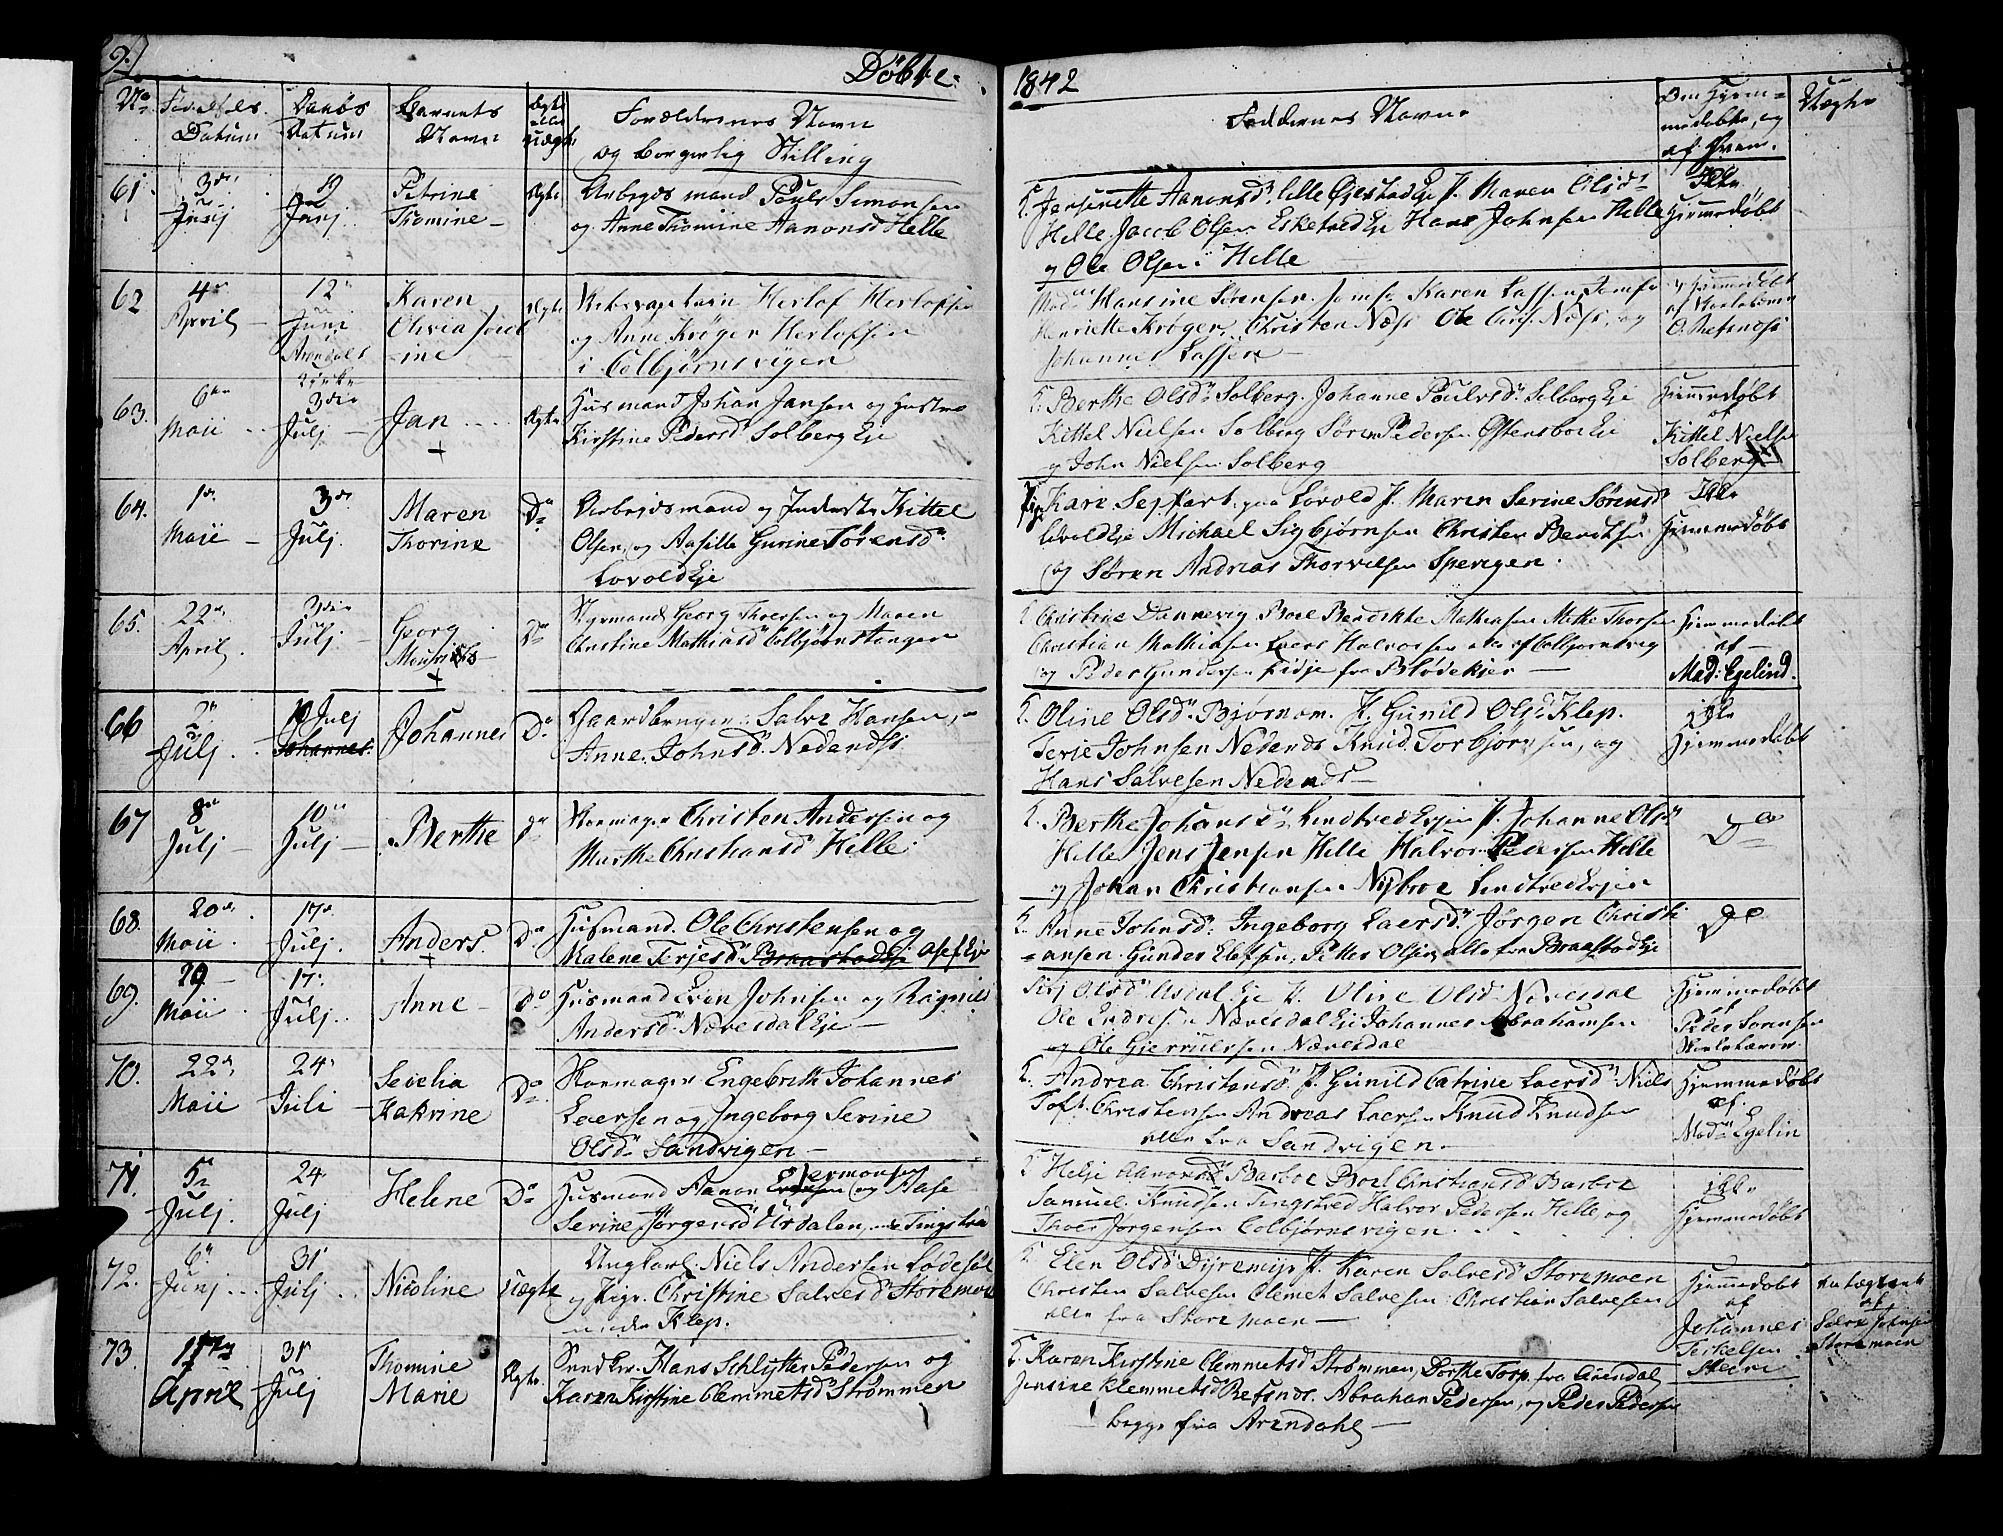 Døbte. 1842
No Fødselsdatum Daabsdatum Barnets Navn Ægte eller uægte Forældrenes Navn og borgerlig Stilling Faddernes Navne Om Hjemmedøbte, og af hvem. Uægte
61. 3die Junj 12 Junj Petrine Tromine Ægte Arbejdsmand Povel Simonsen
og Anne Tromine Aanonsd Helle
Aanonsd. lille P. Maren Olsd
Helle. Jacob Olsen Hans Johnsen Helle
og Ole Olsen i Helle
Ikke Hjemmedøbt
62 4de April 12 Juni Arendals Kirke Karen Olivia ine Ægte Herlof Herlofsen
og Anne Krøger Herlofsen
i Colbjørnsvigen
Mad Hansine Sørensen. Jomfr Karen Lassen, Jomfr
Henriette Krøger, Christen Næss Ole Næss, og
Johannes Lassen
Hjemmedøbt af
63. 6te Maii 3die Julj Jan Ægte Husmand Johan Jansen og Hustru
Kirstine Pedersd Solberg Eje
K. Berthe Olsd Solberg. Johanne Poulsd Solberg Eje
Kittel Nielsen Solberg Søren Pedersen Østensboe Eje
og John Nielsen Solberg
Hjemmedøbt af Kittel Nielsen Solberg
64. 1ste Maii 3die Julj. Maren Thorine Do Arbejdsmand og Inderste Kittel
Olsen, og Aasille Gurine Sørensd
Lovold Eje
Kari paa Lovold P. Maren Serine Sørensd
Lovold Eje Michael Sigbjørnsen Christen Bentsen
og Søren Andreas Thorvilsen Spervigen.
Ikke Hjemmedøbt
65. 22de April. 3die Julj Georg Do Styrmand Georg Thorsen og Maren
Christine Mathiasd Colbjørnstangen
Christine Dannevig Boel Bendikte Mathiasen Mette Thorsen
Christian Mathiasen Laers Halvorsen alle af Colbjørnsvig
og Peder Gundersen fra Blødekjer
Hjemmedøbt af Mad: Egelind.
66 2 Julj. 10 Julj Johannes Do Gaardbruger Salve Hansen,
Anne Johnsd. Nedenæs
K. Oline Olsd Bjørnom. P. Gunild Olsd. Klep.
Terje Johnsen Nedenæs Knud Torbjørnsen, og
Hans Salvesen Nedenæs
ikke Hjemmedøbt
67 8de Julj 10de Julj Berthe do Skomager Christen Andersen og
Marthe Christiansd Helle
K. Berthe Johansd Lindtved P. Johanne Olsd
Helle Jens Jensen Helle Halvor Pedersen Helle
og Johan Christiansen
Do
68. 20de Maii. 17de Julj. Anders. Do Husmand. Ole Christensen og
Malene Terjesd Asef Eje
K. Anne Johnsd. Ingeborg Laersd. Jørgen Christi
ansen. Gunder Elefsen, Petter Olsen, alle fra Braastad Eje
Do
69. 29 Maii 17. Julj. Anne Do Husmand Even Johnsen og Ragnild
Andersd. Nævesdal Eje
Olsd Eje P. Oline Olsd Nævesdal
Ole Endresen Nævesdal Eje Johannes Abrahamsen
og Ole Gjerulfsen Nævesdal
Hjemmedøbt af Peder Sørensen Skolelærer
70. 22de Maii 24 Juli Sevelia Katrine Do. Skomager Engebreth Johannes
Laersen og Ingeborg Serine
Olsd Sandvigen
K. Andrea Christensd. P. Gunild Catrine Laersd Niels
Toft. Christensen Andreas Laersen Knud Knudsen
alle fra Sandvigen
Hjemmedøbt af Mad Egelin
71. 5te Julj. 24 Julj Helene Do Husmand Aanon og Aase
Serine Jørgensd Urdalen, Tingstved
K Helje Aanonsd Barboe Boel Christiansd Barboe
Samuel Knudsen Tingstved Halvor Pedersen Helle og
Thoer Jørgensen Colbjørnsvigen.
ikke Hjemmedøbt
72. 6te Junj 31 Julj Nicoline uægte Ungkarl. Niels Andersen Lødesøl
og Pige. Christine Salvesd Storemoen
under Klep.
K Elen Olsd Dyremyr P. Karen Salvesd Storemoen
Christen Salvesen Clemet Salvesen Christian Salvesen
alle fra Storemoen
Hjemmedøbt af Johannes Terkelsen
af Salve Johnsen Storemoen
73. April 31 Julj Thomine Marie Ægte. Hans Schlytter Pedersen og
Karen Kirstine Clemmetsd. Strømmen
K. Karen Kirstine Clemmetsd Strømmen, Dorthe Torp fra Arendal
Jensine Klemmetsd Refsnes. Abraham Pedersen, og Peder Pedersen
begge fra Arendahl